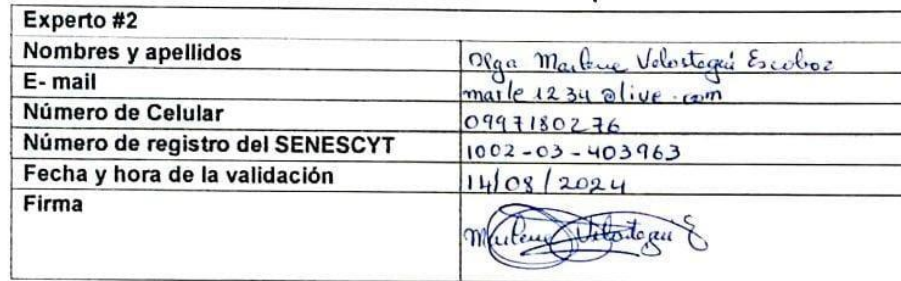 Experto #2
Nombres y apellidos Olga Marlene Velastegui Escobar
E- mail marle1234@live.com
Número de Celular 0997180276
Número de registro del SENESCYT 1002-03-403963
Fecha y hora de la validación 14/08/2024
Firma Marlene Velastegui E